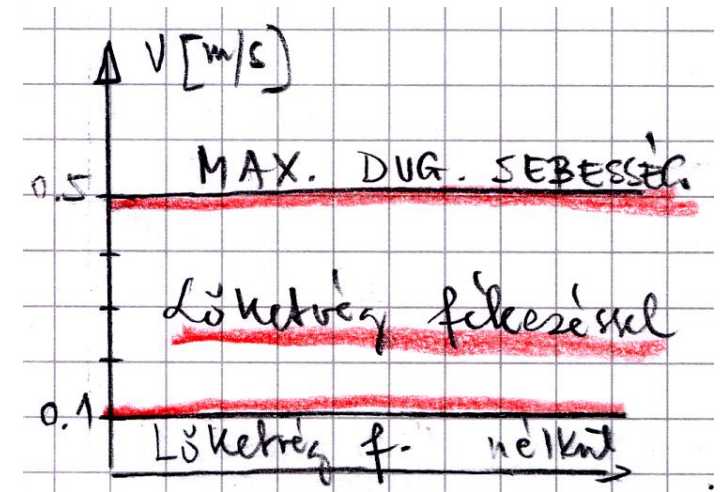 V [m/s]
MAX. DUG. SEBESSÉG.
0.5
Löketvég fékezéssel
0.1
Löketvég f. nélkül